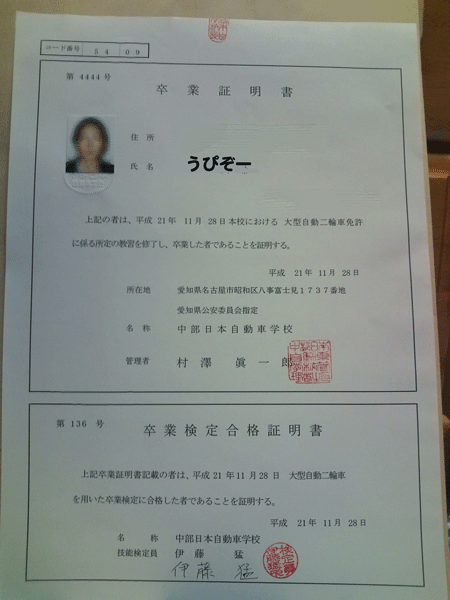 コード番号 5 4 0 9
第 4444 号
卒業証明書
住所
氏名 うぴぞー
上記の者は、平成 21年 11月 28日本校における 大型自動二輪車免許
に係る所定の教習を修了し、卒業した者であることを証明する。
平成 21年 11月 28日
所在地 愛知県名古屋市昭和区八事富士見1737番地
愛知県公安委員会指定
名称 中部日本自動車学校
管理者 村澤眞一郎
第 136 号
卒業検定合格証明書
上記卒業証明書記載の者は、平成 21年11月 28日 大型自動二輪車
を用いた卒業検定に合格した者であることを証明する。
平成 21年 11月 28日
名称 中部日本自動車学校
技能検定員 伊藤 猛
伊藤 猛